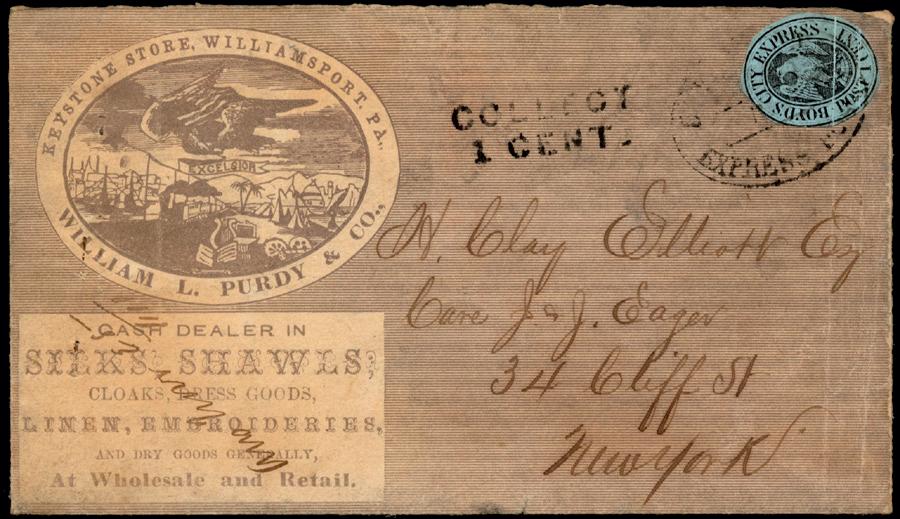 KEYSTONE STORE, WILLIAMSPORT, PA.,
EXCELSIOR
WILLIAM L. PURDY & CO.,
CASH DEALER IN
SILKS, SHAWLS,
CLOAKS, DRESS GOODS,
LINEN, EMBROIDERIES,
AND DRY GOODS GENERALLY,
At Wholesale and Retail.
COLLECT
1 CENT.
BOYDS CITY EXPRESS
POST
EXPRESS
H. Clay Elliott Esq
Care J & J. Eager
34 Cliff St
New York